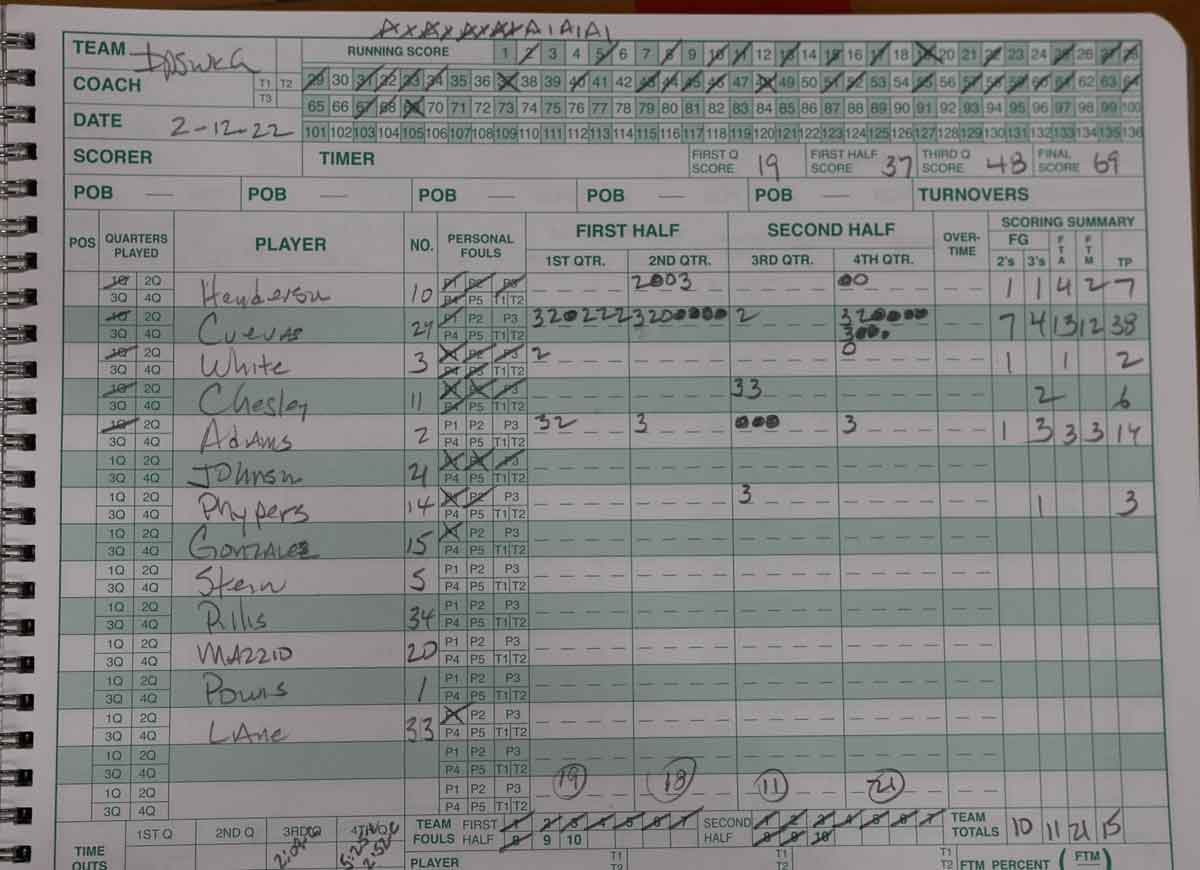 TEAM RUNNING SCORE 1 2 3 4 5 6 7 8 9 10 11 12 13 14 15 16 17 18 19 20 21 22 23 24 25 26 27 28
COACH T1 T2 T3 29 30 31 32 33 34 35 36 37 38 39 40 41 42 43 44 45 46 47 48 49 50 51 52 53 54 55 56 57 58 59 60 61 62 63 64
65 66 67 68 69 70 71 72 73 74 75 76 77 78 79 80 81 82 83 84 85 86 87 88 89 90 91 92 93 94 95 96 97 98 99 100
DATE 2-12-22 101 102 103 104 105 106 107 108 109 110 111 112 113 114 115 116 117 118 119 120 121 122 123 124 125 126 127 128 129 130 131 132 133 134 135 136
SCORER TIMER FIRST Q SCORE 19 FIRST HALF SCORE 37 THIRD Q SCORE 48 FINAL SCORE 69
POB — POB — POB — POB — POB — TURNOVERS
POS QUARTERS PLAYED PLAYER NO. PERSONAL FOULS FIRST HALF SECOND HALF OVER-TIME SCORING SUMMARY
1ST QTR. 2ND QTR. 3RD QTR. 4TH QTR. FG 2's 3's FTA FTM TP
1Q 2Q 3Q 4Q Henderson 10 P1 P2 P3 P4 P5 T1 T2 2003 00 1 1 4 2 7
1Q 2Q 3Q 4Q Cuevas 24 P1 P2 P3 P4 P5 T1 T2 320222 3200000 2 320000 3000 7 4 13 12 38
1Q 2Q 3Q 4Q White 3 P1 P2 P3 P4 P5 T1 T2 2 0 1 1 2
1Q 2Q 3Q 4Q Chesley 11 P1 P2 P3 P4 P5 T1 T2 33 2 6
1Q 2Q 3Q 4Q Adams 2 P1 P2 P3 P4 P5 T1 T2 32 3 000 3 1 3 3 3 14
1Q 2Q 3Q 4Q Johnson 4 P1 P2 P3 P4 P5 T1 T2
1Q 2Q 3Q 4Q Phypers 14 P1 P2 P3 P4 P5 T1 T2 3 1 3
1Q 2Q 3Q 4Q Gonzalez 15 P1 P2 P3 P4 P5 T1 T2
1Q 2Q 3Q 4Q Stern 5 P1 P2 P3 P4 P5 T1 T2
1Q 2Q 3Q 4Q 34 P1 P2 P3 P4 P5 T1 T2
1Q 2Q 3Q 4Q MAZZIO 20 P1 P2 P3 P4 P5 T1 T2
1Q 2Q 3Q 4Q 1 P1 P2 P3 P4 P5 T1 T2
1Q 2Q 3Q 4Q LAne 33 P1 P2 P3 P4 P5 T1 T2
1Q 2Q 3Q 4Q P1 P2 P3 P4 P5 T1 T2
1Q 2Q 3Q 4Q P1 P2 P3 P4 P5 T1 T2 19 18 11 21
TIME OUTS 1ST Q 2ND Q 3RD Q 4TH Q TEAM FOULS FIRST HALF 1 2 3 4 5 6 7 8 9 10 SECOND HALF 1 2 3 4 5 6 7 8 9 10 TEAM TOTALS 10 11 21 15
5:25 2:52
PLAYER T1 T2 T1 T2 T1 T2 FTM PERCENT (FTM)